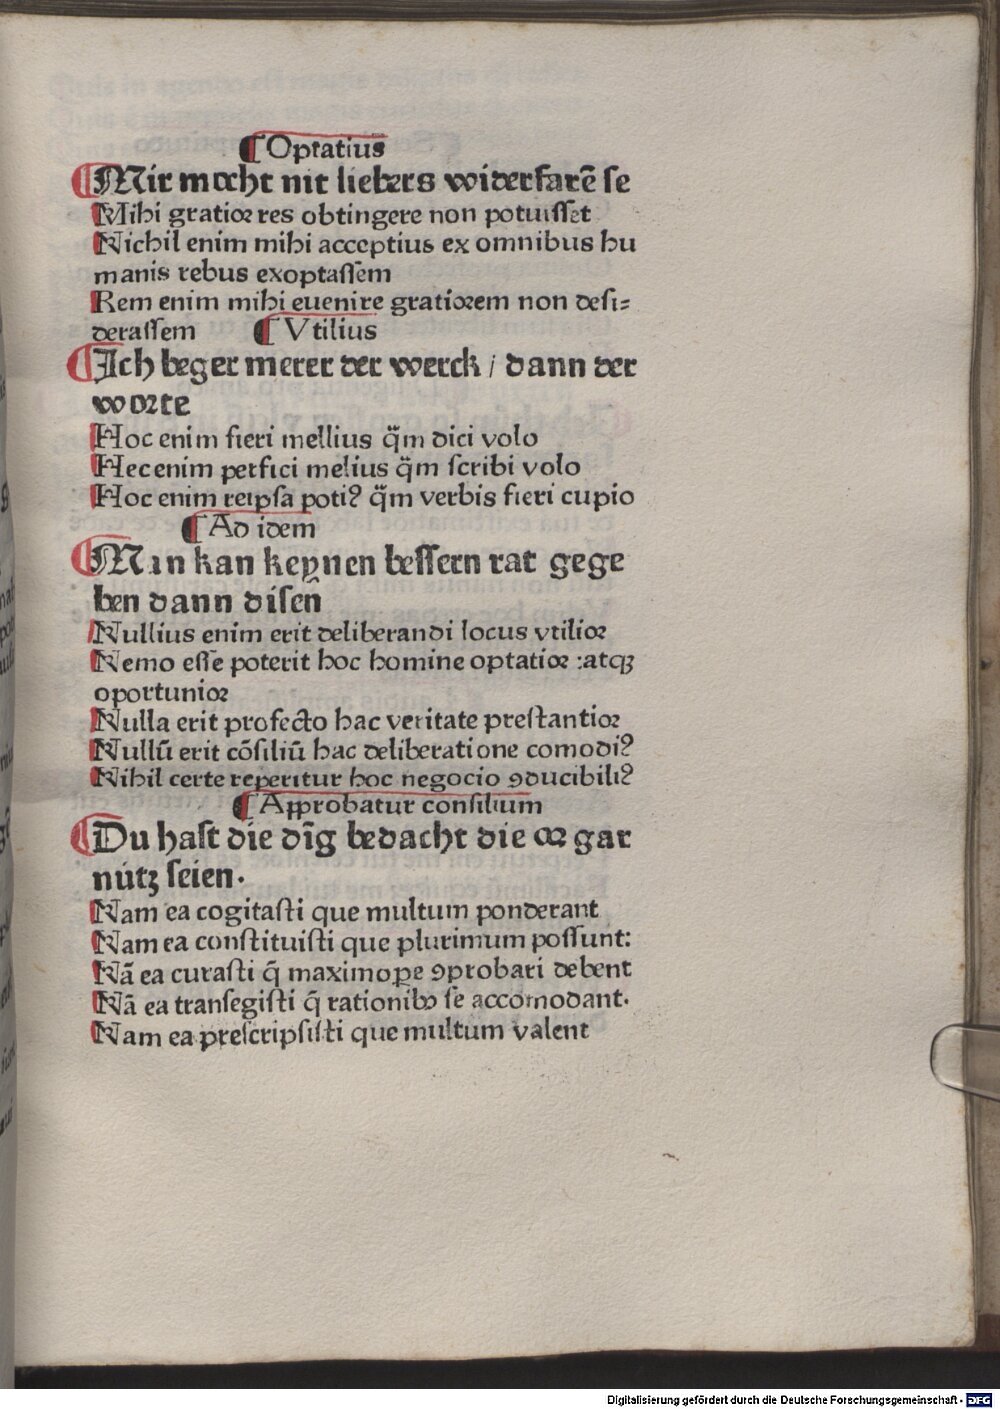 ¶ Optatius
¶ Mir mocht nit liebers widerfarē se
Mihi gratior res obtingere non potuisset
Nichil enim mihi acceptius ex omnibus hu
manis rebus exoptassem
Rem enim mihi euenire gratiorem non desi=
derassem ¶ Vtilius
¶ Ich beger merer der werck / dann der
worte
Hoc enim fieri mellius q̈m dici volo
Hec enim perfici melius q̈m scribi volo
Hoc enim reipsa poti⁹ q̈m verbis fieri cupio
¶ Ad idem
¶ Man kan keynen bessern rat gege
ben dann disen
Nullius enim erit deliberandi locus vtilior
Nemo esse poterit hoc homine optatior :atqꝫ
oportunior
Nulla erit profecto hac veritate prestantior
Nullū erit cōsiliū hac deliberatione comodi⁹
Nihil certe reperitur hoc negocio ꝯducibili⁹
¶ Approbatur consilium
¶ Du hast die dīg bedacht die or gar
nútz seien.
Nam ea cogitasti que multum ponderant
Nam ea constituisti que plurimum possunt:
Nā ea curasti q̄ maximoꝑe ꝯprobari debent
Nā ea transegisti q̄ rationibꝰ se accomodant.
Nam ea prescripsisti que multum valent
Digitalisierung gefördert durch die Deutsche Forschungsgemeinschaft - DFG